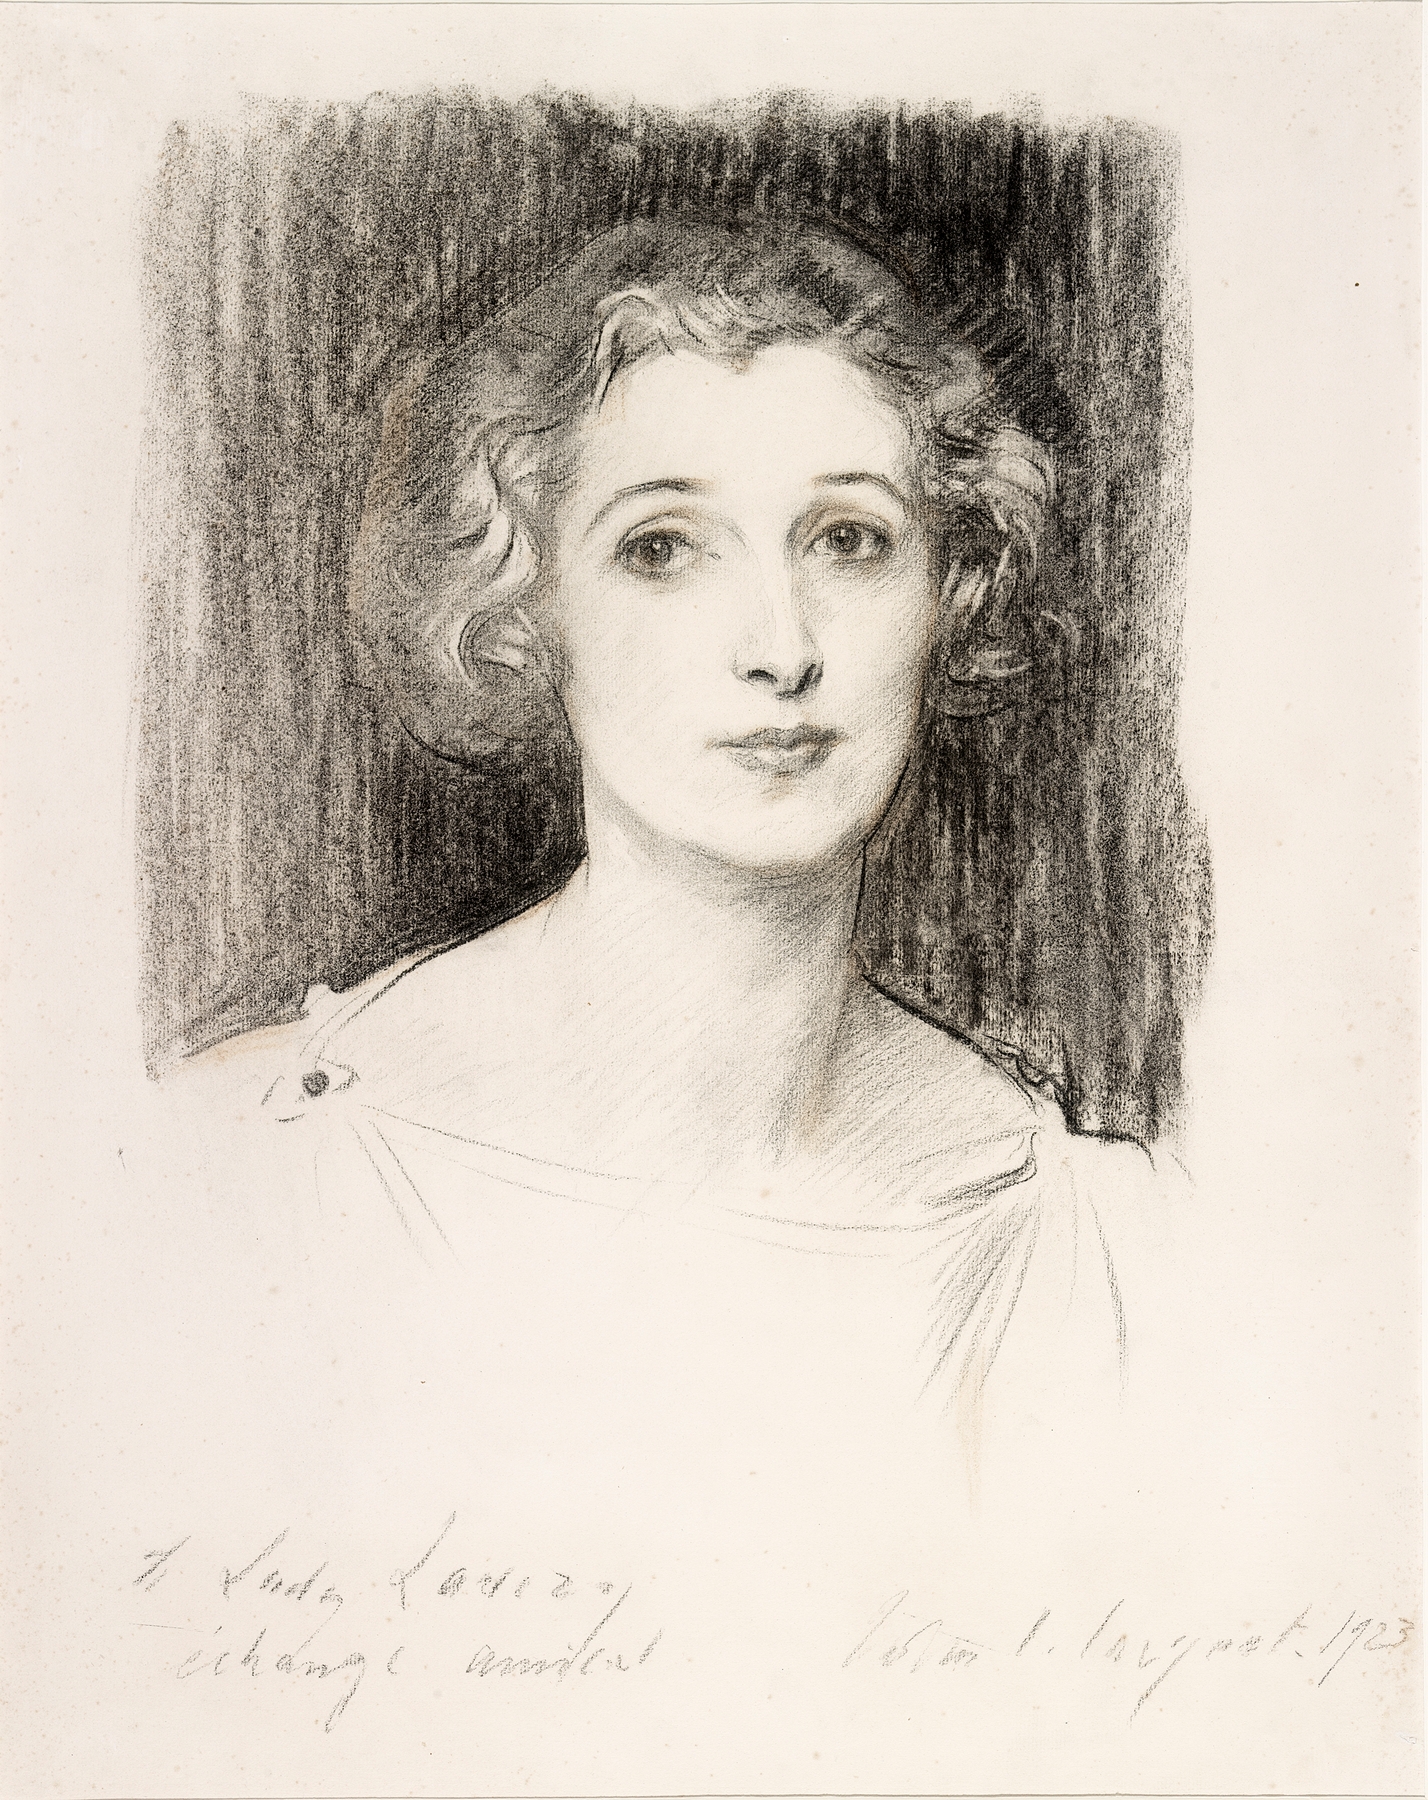 to Lady Lavery
échange amical
John S. Sargent. 1923